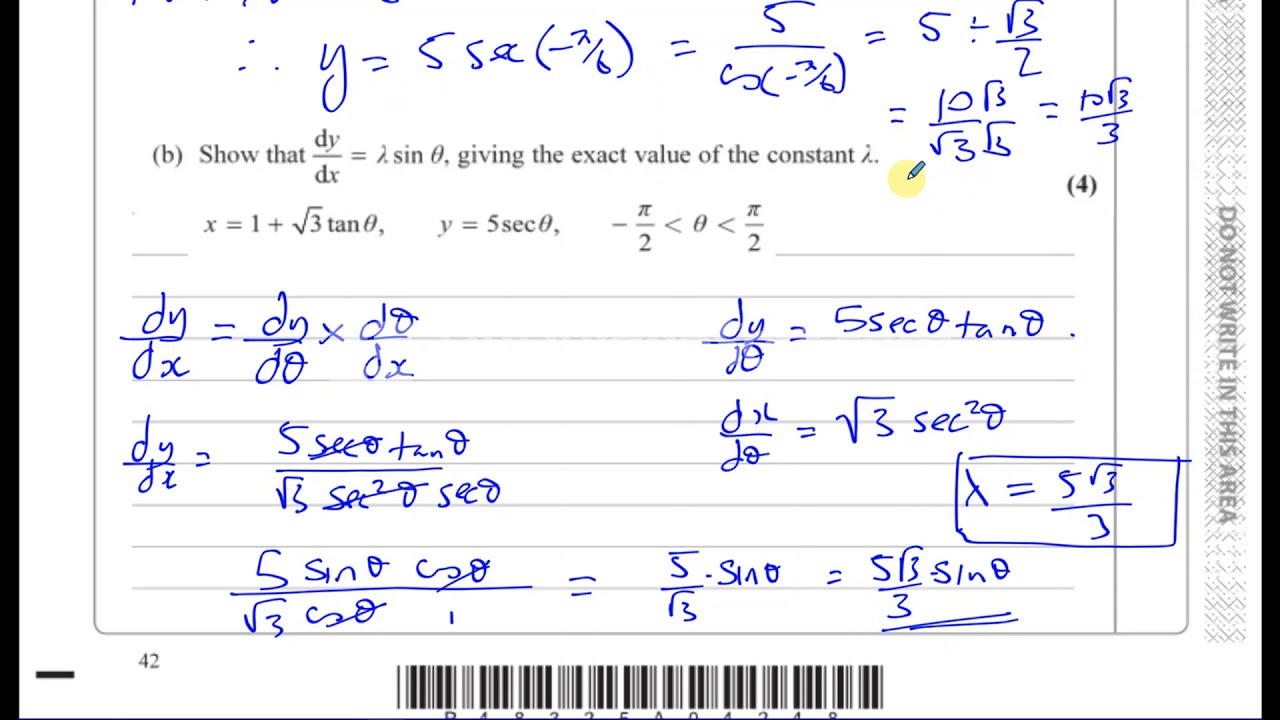 ∴ y = 5 sec(-π/6) = 5/cos(-π/6) = 5 ÷ √3/2
= 10√3/√3√3 = 10√3/3
(b) Show that dy/dx = λ sin θ, giving the exact value of the constant λ.
(4)
x = 1 + √3 tan θ, y = 5 sec θ, -π/2 < θ < π/2
dy/dx = dy/dθ × dθ/dx
dy/dθ = 5 sec θ tan θ.
dx/dθ = √3 sec²θ
dy/dx = 5 sec θ tan θ / √3 sec²θ sec θ
λ = 5√3/3
5 sin θ cos θ / √3 cos θ 1 = 5/√3 · sin θ = 5√3/3 · sin θ
42
DO NOT WRITE IN THIS AREA